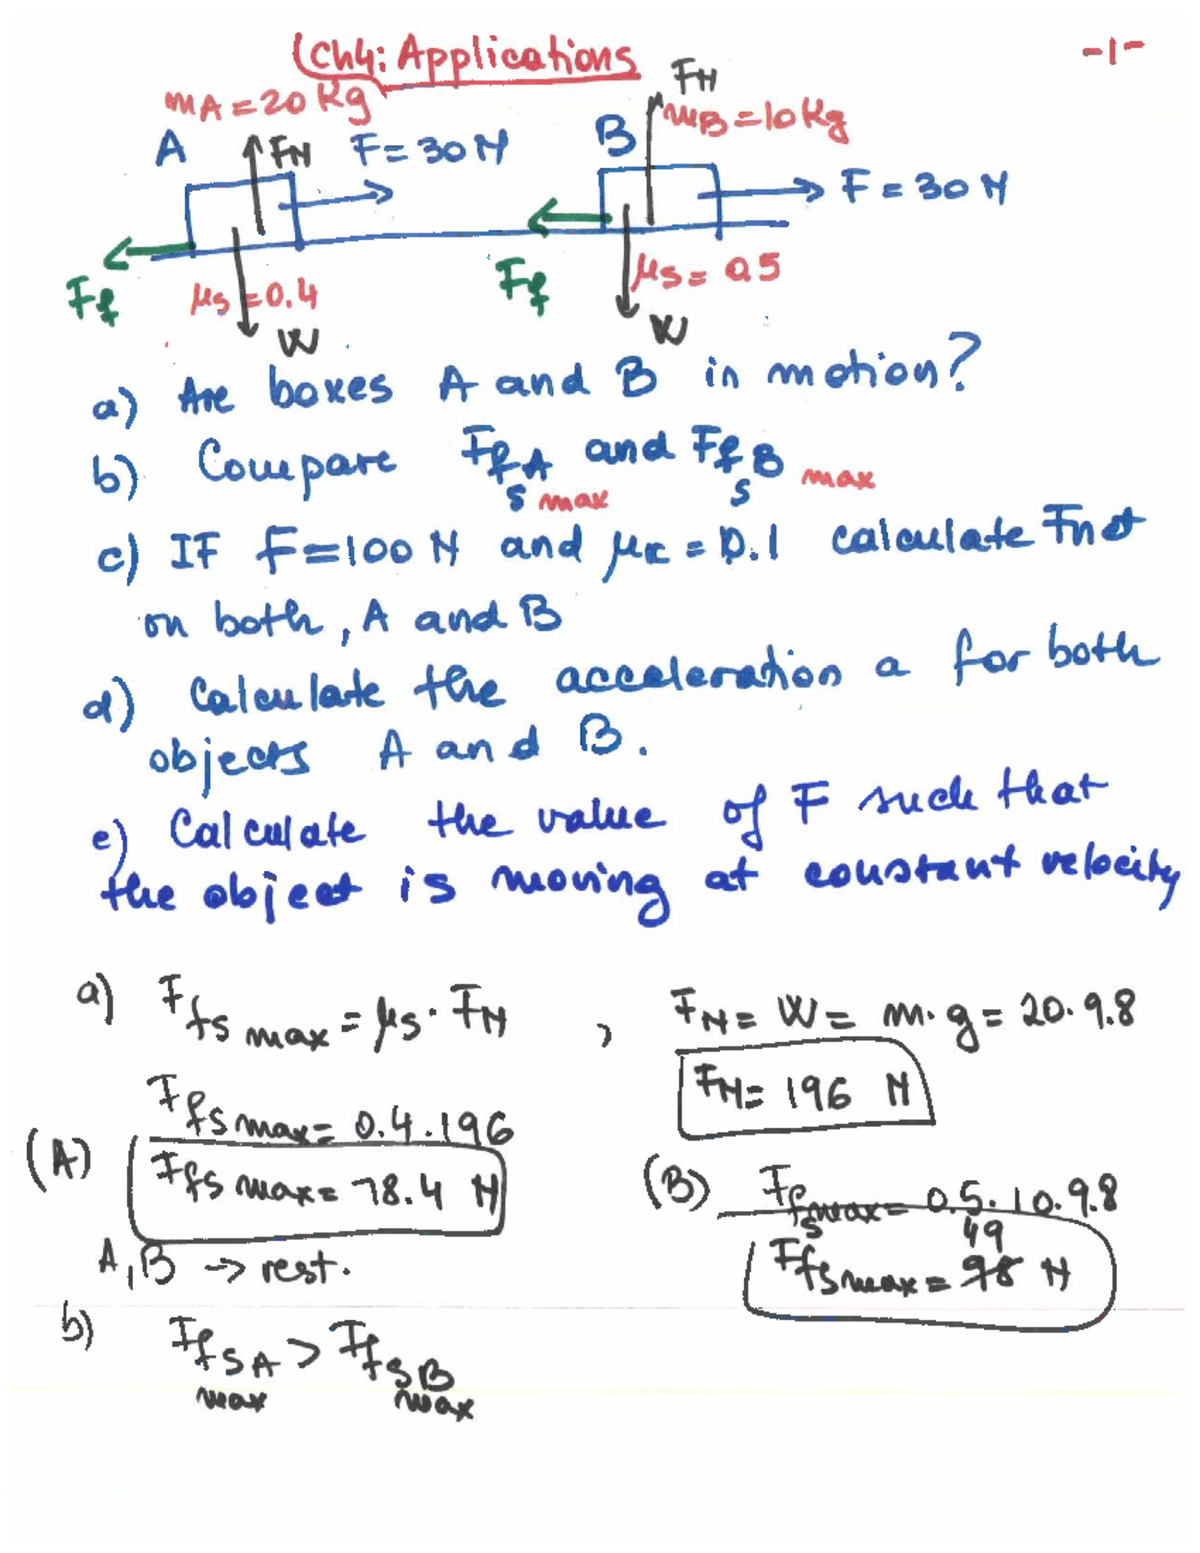 Ch4: Applications
-1-
mA = 20 Kg
FN
mB = 10 Kg
A
FN
F = 30 N
B
F = 30 N
Ff
μs = 0.4
W
Ff
μs = 0.5
W
a) Are boxes A and B in motion?
b) Compare FfsA max and FfsB max
c) IF F = 100 N and μk = 0.1 calculate Fnet
on both, A and B
d) Calculate the acceleration a for both
objects A and B.
e) Calculate the value of F such that
the object is moving at constant velocity
a) Ffs max = μs · FN , FN = W = m · g = 20 · 9.8
FN = 196 N
Ffs max = 0.4 · 196
(A) Ffs max = 78.4 N
(B) Ffs max = 0.5 · 10 · 9.8
49
Ffs max = 98 N
A, B → rest.
b) FfsA max > FfsB max